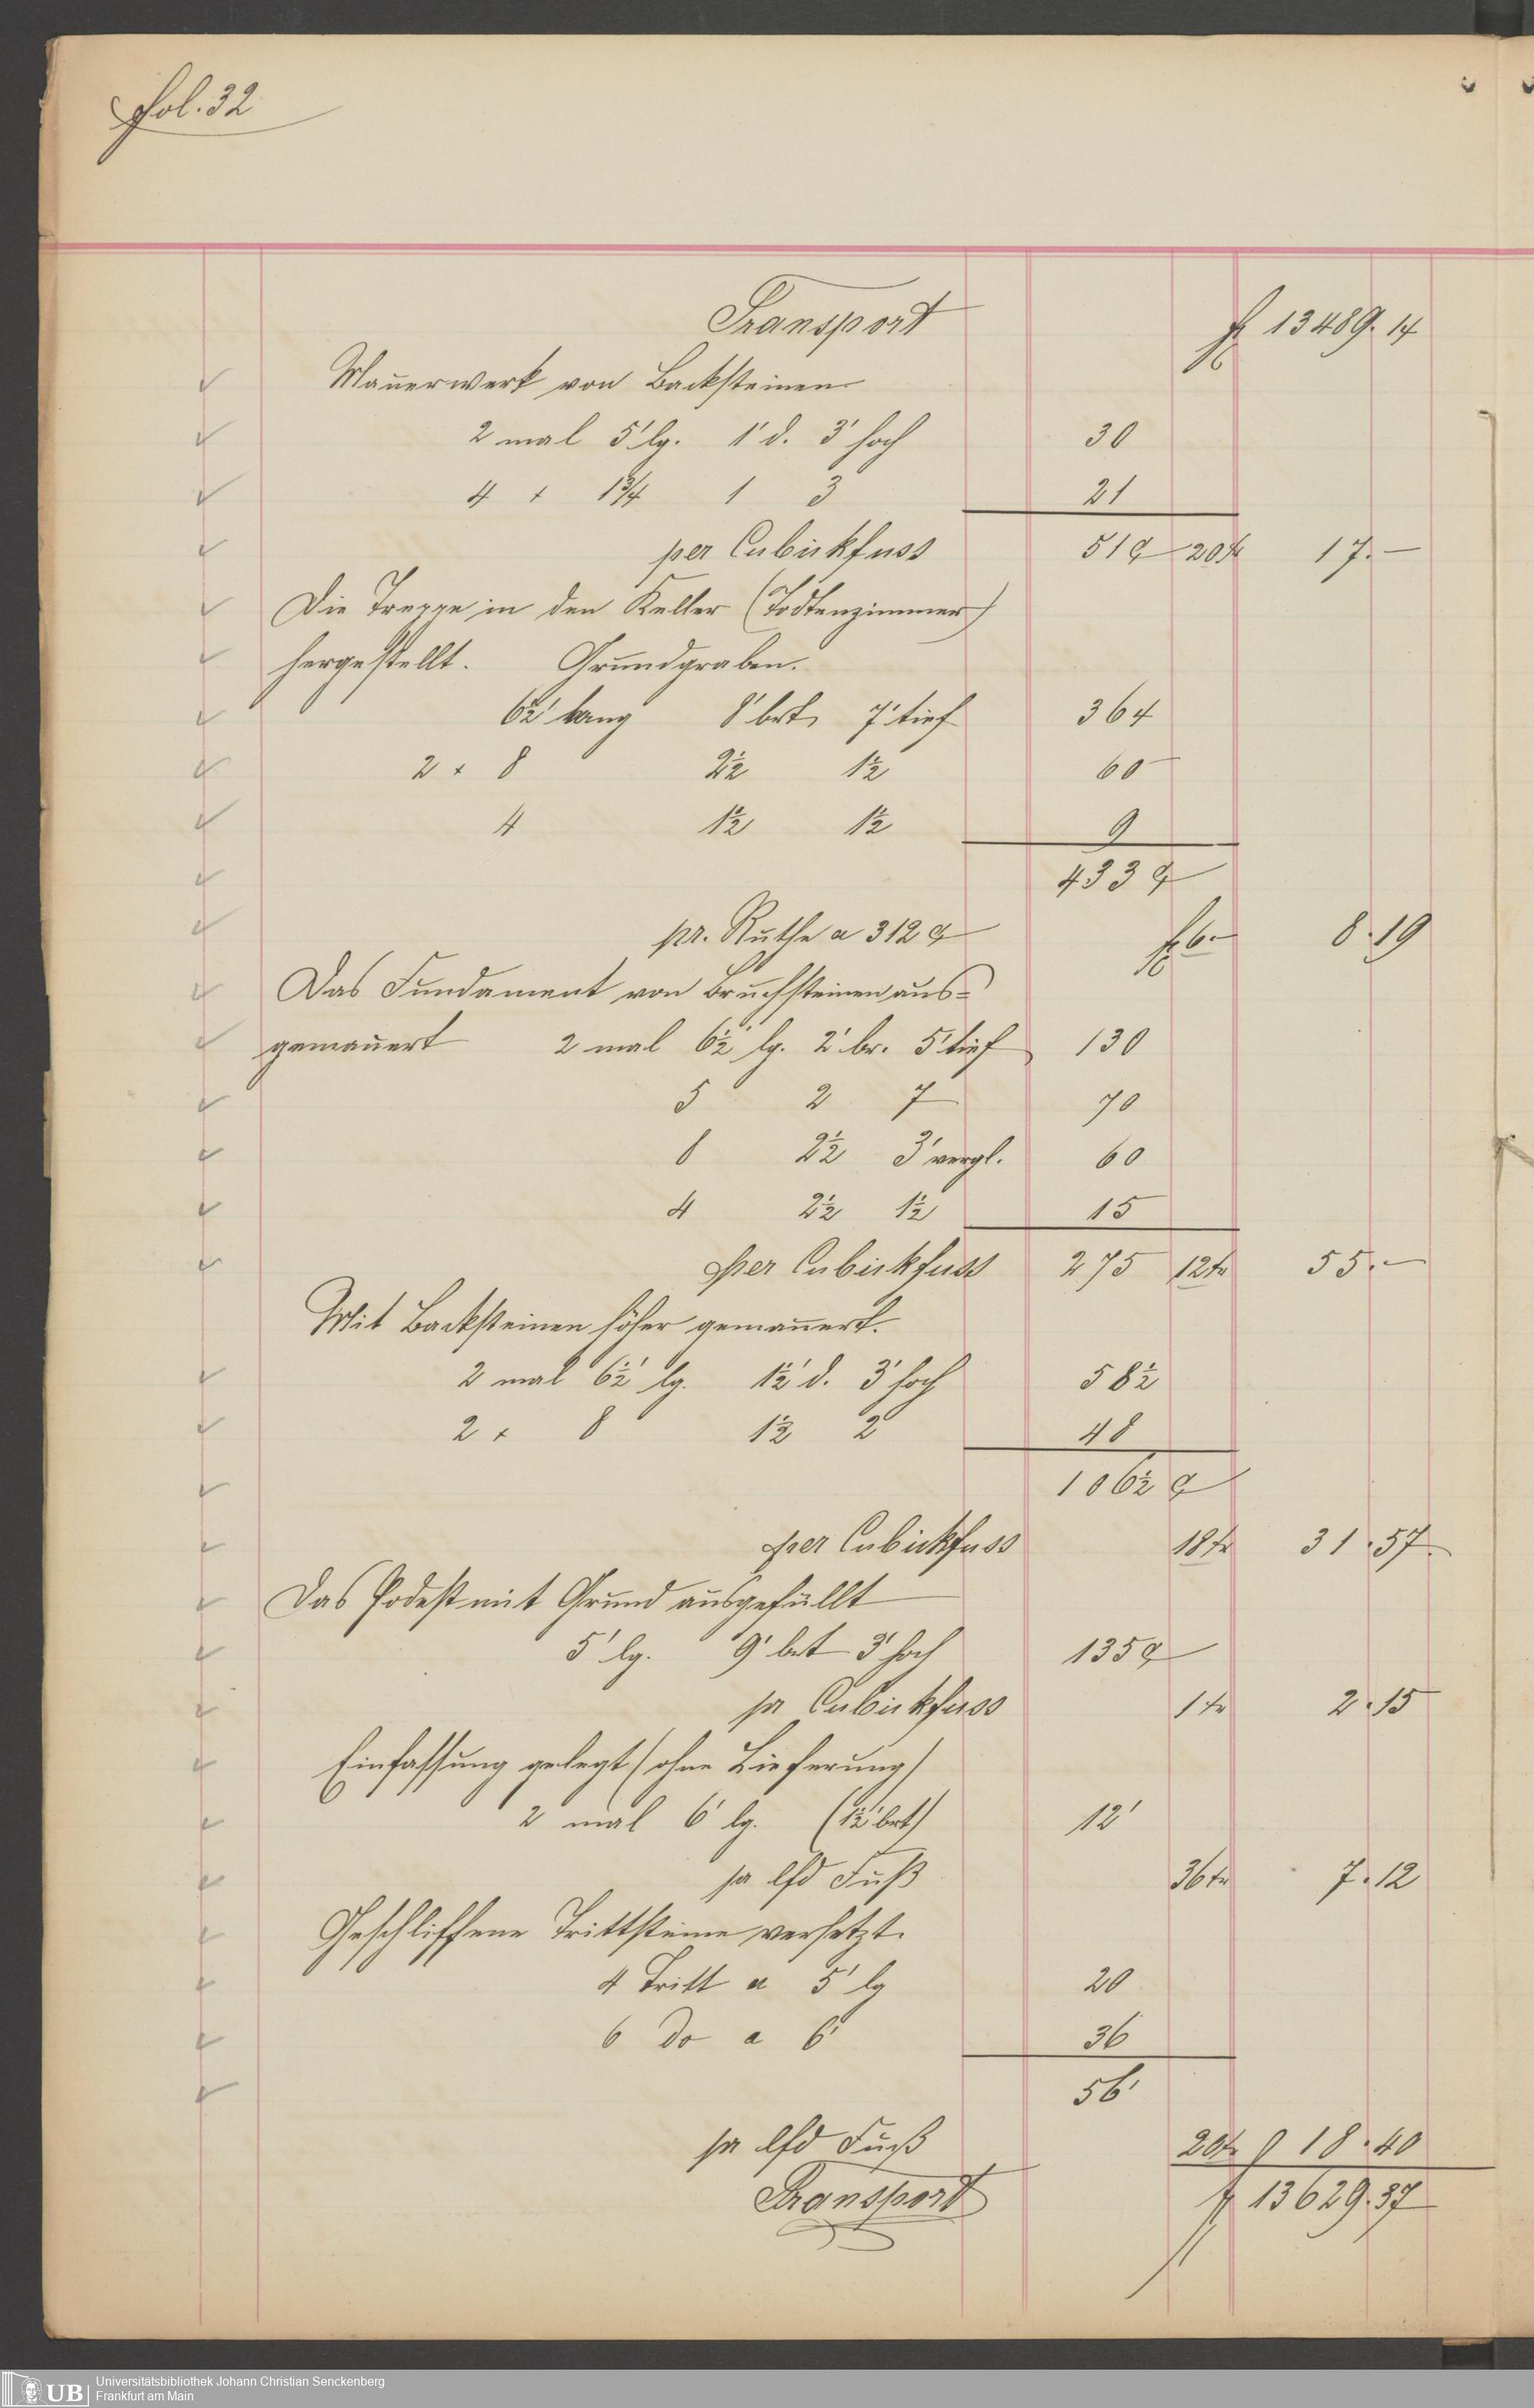 fol. 32
Transport f 13489. 14
Mauerwerk von Backsteinen
2 mal 5' lg. 1' d. 3' hoch 30
4 + 1¾ 1 3 21
per Cubickfuss 51 c 20 kr 17. —
Die Treppe in den Keller (Todtenzimmer)
hergestellt. Grundgraben.
6½' lang 8' brt. 7' tief 364
2 + 8 2½ 1½ 60
4 1½ 1½ 9
433 c
pr. Ruthe a 312 c f 6.— 8. 19
Das Fundament von Bruchsteinen aus=
gemauert 2 mal 6½' lg. 2' br. 5' tief 130
5 2 7 70
8 2½ 3' vergl. 60
4 2½ 1½ 15
per Cubickfuss 275 12 kr 55. —
Mit Backsteinen höher gemauert.
2 mal 6½' lg. 1½' d. 3' hoch 58½
2 + 8 1½ 2 48
106½ c
per Cubickfuss 18 kr 31. 57
Das Podest mit Grund ausgefüllt
5' lg. 9' brt 3' hoch 135 c
pr Cubickfuss 1 kr 2. 15
Einfassung gelegt (ohne Lieferung)
2 mal 6' lg. (1½' brt) 12'
pr lfd Fuß 36 kr 7. 12
Geschliffene Trittsteine versetzt.
4 Tritt a 5' lg 20
6 do a 6' 36
56'
pr lfd Fuß 20 kr 18. 40
Transport f 13629. 37
UB
Universitätsbibliothek Johann Christian Senckenberg
Frankfurt am Main